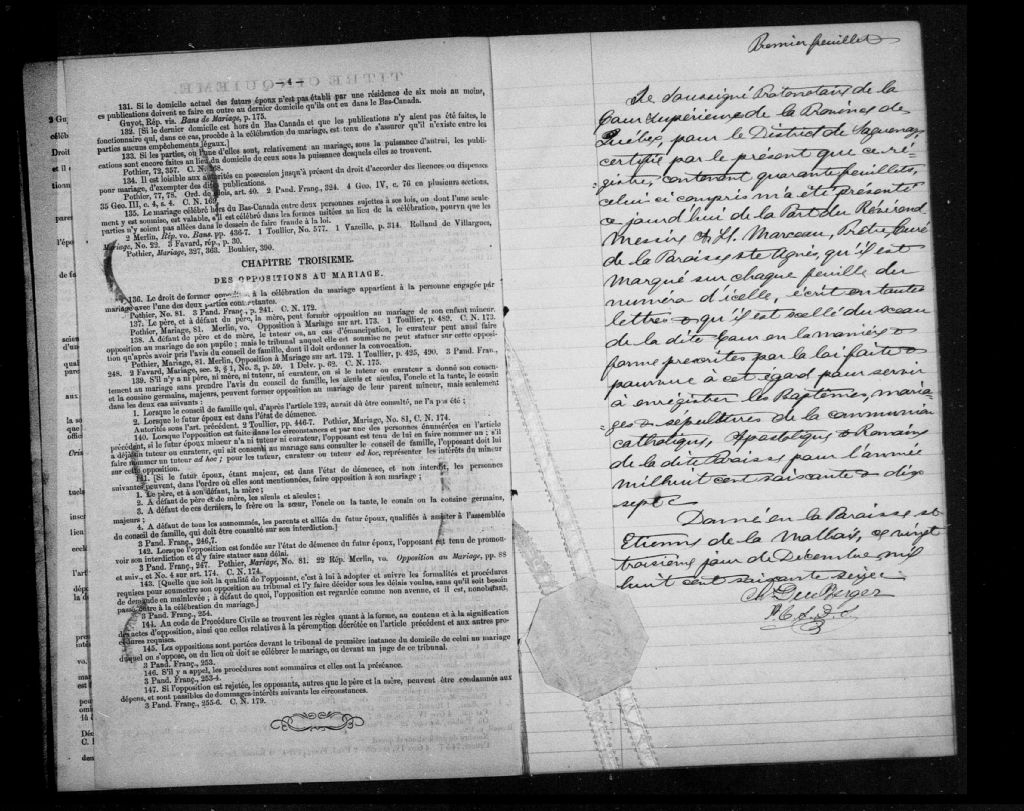 —4—
131. Si le domicile actuel des futurs époux n'est pas établi par une résidence de six mois au moins,
ces publications doivent se faire en outre au dernier domicile qu'ils ont eu dans le Bas-Canada.
Guyot, Rép. vis. Bans de Mariage, p. 175.
132. [Si le dernier domicile est hors du Bas Canada et que les publications n'y aient pas été faites, le
fonctionnaire qui, dans ce cas, procède à la célébration du mariage, est tenu de s'assurer qu'il n'existe entre les
parties aucuns empêchements légaux.]
133. Si les parties, ou l'une d'elles sont, relativement au mariage, sous la puissance d'autrui, les publi-
cations sont encore faites au lieu du domicile de ceux sous la puissance desquels elles se trouvent.
Pothier, 72, 357. C. N. 168.
134. Il est loisible aux autorités en possession jusqu'à présent du droit d'accorder des licences ou dispenses
pour mariage, d'exempter des dites publications.
Pothier, 77, 78. Ord. de Blois, art. 40. 2 Pand. Franç., 324. 4 Geo. IV, c. 76 en plusieurs sections,
35 Geo. III, c. 4, s. 4. C. N. 169.
135. Le mariage célébré hors du Bas-Canada entre deux personnes sujettes à ses lois, ou dont l'une seule-
ment y est soumise, est valable, s'il est célébré dans les formes usitées au lieu de la célébration, pourvu que les
parties n'y soient pas allées dans le dessein de faire fraude à la loi.
2 Merlin, Rép. vo. Bans. pp. 436-7. 1 Toullier, No. 577. 1 Vazeille, p. 314. Rolland de Villargues,
Mariage, No. 22. 3 Favard, rép., p. 30.
Pothier, Mariage, 327, 363. Bouhier, 390.
CHAPITRE TROISIEME.
DES OPPOSITIONS AU MARIAGE.
136. Le droit de former opposition à la célébration du mariage appartient à la personne engagée par
mariage avec l'une des deux parties contractantes.
Pothier, No. 81. 3 Pand. Franç., p. 241. C. N. 172.
137. Le père, et à défaut du père, la mère, peut former opposition au mariage de son enfant mineur.
Pothier, Mariage, 81. Merlin, vo. Opposition à Mariage sur art. 173. 1 Toullier, p. 489. C. N. 173.
138. A défaut de père et de mère, le tuteur ou, au cas d'émancipation, le curateur peut aussi faire
opposition au mariage de son pupille ; mais le tribunal auquel elle est soumise ne peut statuer sur cette opposi-
tion qu'après avoir pris l'avis du conseil de famille, dont il doit ordonner la convocation.
Pothier, Mariage, 81. Merlin, Opposition à Mariage sur art. 172. 1 Toullier, p. 425, 490. 3 Pand. Fra.,
248. 2 Favard, Mariage, sec. 2, § 1, No. 3, p. 59. 1 Delv. p. 62. C. N. 175.
139. S'il n'y a ni père, ni mère, ni tuteur, ni curateur, ou si le tuteur ou curateur a donné son consen-
tement au mariage sans prendre l'avis du conseil de famille, les aïeuls et aïeules, l'oncle et la tante, le cousin
et la cousine germains, majeurs, peuvent former opposition au mariage de leur parent mineur, mais seulement
dans les deux cas suivants :
1. Lorsque le conseil de famille qui, d'après l'article 122, aurait dû être consulté, ne l'a pas été ;
2. Lorsque le futur époux est dans l'état de démence.
Autorités sous l'art. précédent. 2 Toullier, pp. 446-7. Pothier, Mariage, No. 81, C. N. 174.
140. Lorsque l'opposition est faite dans les circonstances et par une des personnes énumérées en l'article
précédent, si le futur époux mineur n'a ni tuteur ni curateur, l'opposant est tenu de lui en faire nommer un ; s'il
a déjà un tuteur ou curateur, qui ait consenti au mariage sans consulter le conseil de famille, l'opposant doit lui
faire nommer un tuteur ad hoc ; pour les tuteur, curateur ou tuteur ad hoc, représenter les intérêts du mineur
sur cette opposition.
141. [Si le futur époux, étant majeur, est dans l'état de démence, et non interdit, les personnes
suivantes peuvent, dans l'ordre où elles sont mentionnées, faire opposition à son mariage ;
1. Le père, et à son défaut, la mère ;
2. A défaut de père et de mère, les aïeuls et aïeules ;
3. A défaut de ces derniers, le frère ou la sœur, l'oncle ou la tante, le cousin ou la cousine germains,
majeurs ;
4. A défaut de tous les susnommés, les parents et alliés du futur époux, qualifiés à assister à l'assemblée
du conseil de famille, qui doit être consulté sur son interdiction.]
3 Pand. Franç., 246,7.
142. Lorsque l'opposition est fondée sur l'état de démence du futur époux, l'opposant est tenu de promou-
voir son interdiction et d'y faire statuer sans délai.
3 Pand. Franç., 247. Pothier, Mariage, No. 81. 22 Rép. Merlin, vo. Opposition au Mariage, pp. 88
et suiv., et No. 4 sur art. 174. C. N. 174.
143. [Quelque que soit la qualité de l'opposant, c'est à lui à adopter et suivre les formalités et procédures
requises pour soumettre son opposition au tribunal et l'y faire décider sous les délais voulus, sans qu'il soit besoin
de demande en mainlevée ; à défaut de quoi, l'opposition est regardée comme non avenue, et il est, nonobstant,
passé outre à la célébration du mariage.]
3 Pand. Franç., 254.
144. Au code de Procédure Civile se trouvent les règles quant à la forme, au contenu et à la signification
des actes d'opposition, ainsi que celles relatives à la péremption décrétée en l'article précédent et aux autres pro-
cédures requises.
145. Les oppositions sont portées devant le tribunal de première instance du domicile de celui au mariage
duquel on s'oppose, ou du lieu où doit se célébrer le mariage, ou devant un juge de ce tribunal.
3 Pand. Franç., 253.
146. S'il y a appel, les procédures sont sommaires et elles ont la préséance.
3 Pand. Franç., 253-4.
147. Si l'opposition est rejetée, les opposants, autres que le père et la mère, peuvent être condamnés aux
dépens, et sont passibles de dommages-intérêts suivants les circonstances.
3 Pand. Franç., 255-6. C. N. 179.
Premier feuillet
Je soussigné Protonotaire de la
Cour Supérieure de la Province de
Québec, pour le District de Saguenay,
certifie par le présent que ce ré-
gistre, contenant quarante feuillets,
celui ci compris m'a été présenté
ce jourd'hui de la Part du Révérend
Messire A. H. Marceau, Prêtre, Curé
de la Paroisse Ste Agnès, qu'il est
marqué sur chaque feuille du
numéro d'icelle, écrit en toutes
lettres & qu'il est scellé du sceau
de la dite Cour en la manière &
forme prescrites par la loi faite &
pourvue à cet égard pour servir
à enregistrer les Baptêmes, maria-
ges & sépultures de la communion
catholique, Apostolique & Romaine
de la dite Paroisse pour l'année
mil huit cent soixante & dix
sept
Donné en la Paroisse St
Etienne de la Malbaie, ce vingt
troisième jour de Décembre mil
huit cent soixante seize
Berger
P. C. S. D. S.